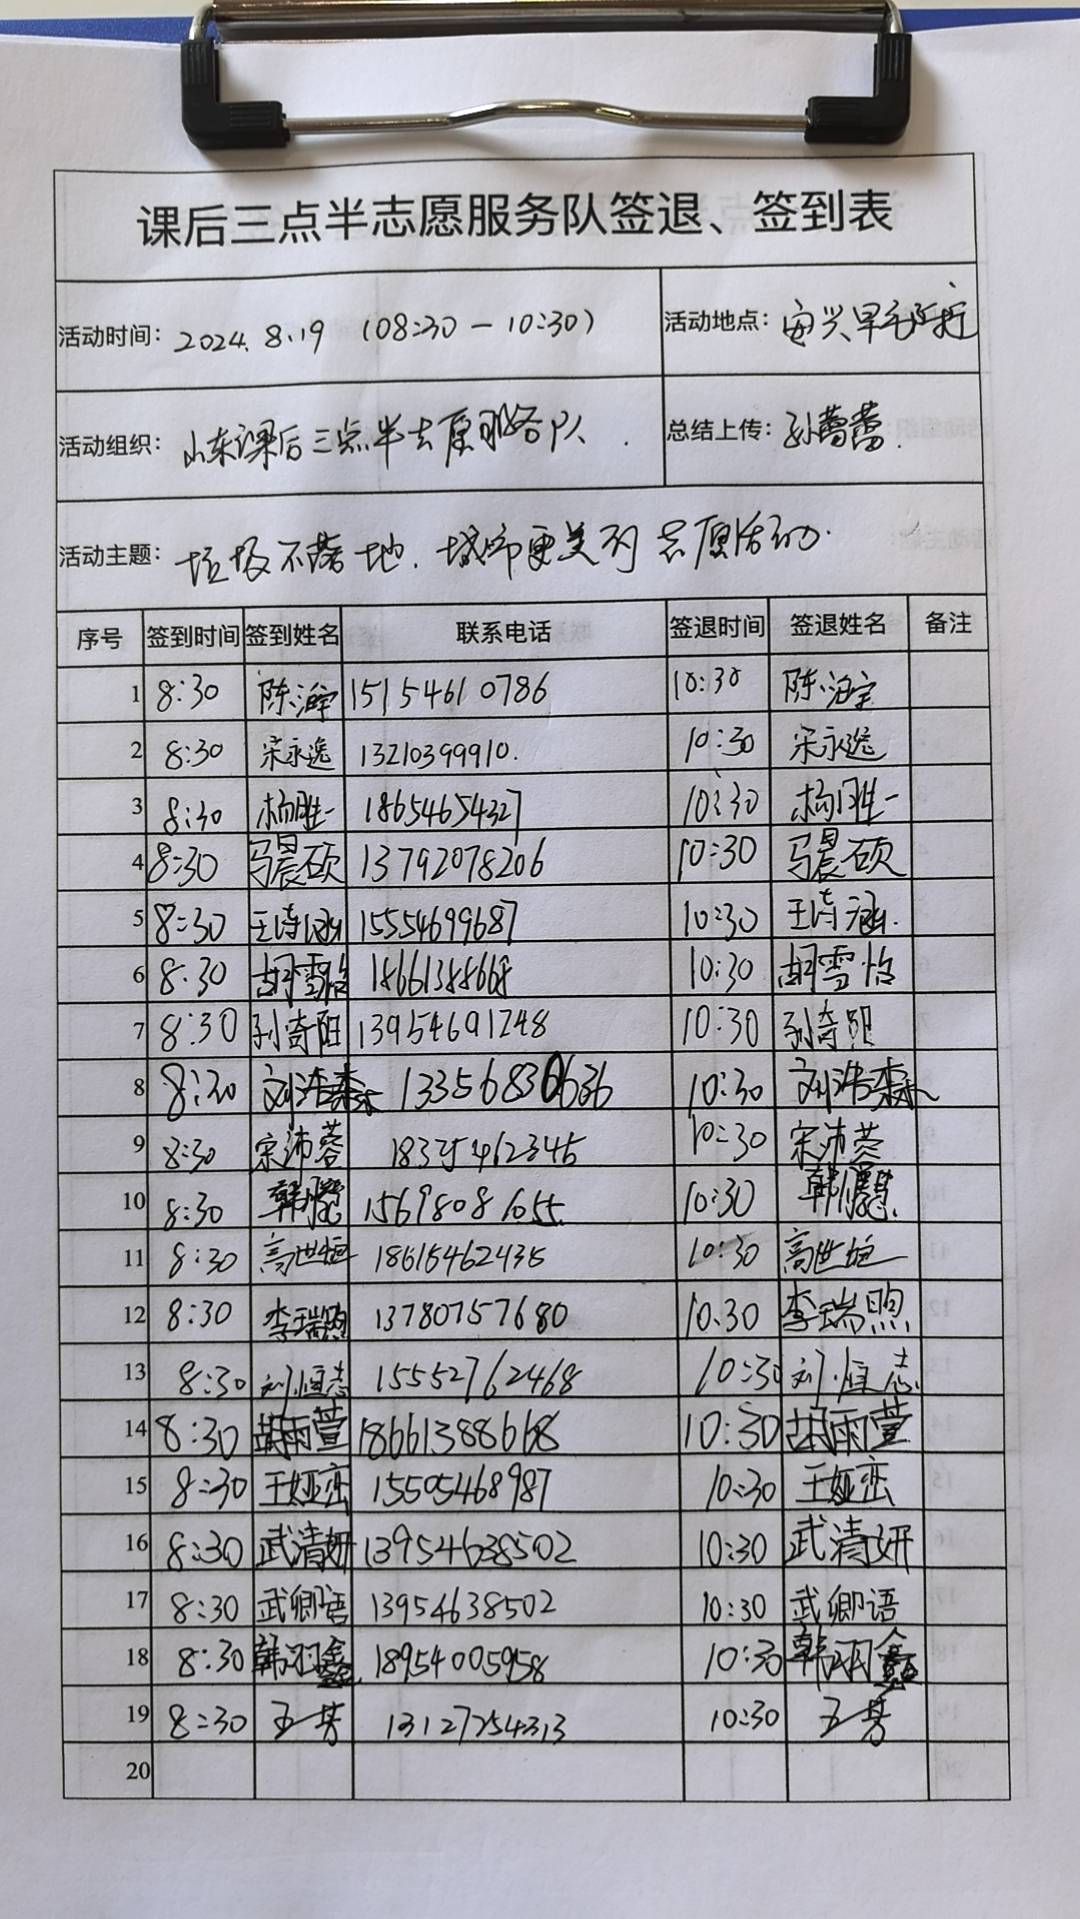 课后三点半志愿服务队签退、签到表
活动时间：2024.8.19 （08:30—10:30） 活动地点：
活动组织：山东课后三点半志愿服务队. 总结上传：孙蕾蕾.
活动主题：垃圾不落地.城市更美丽 志愿活动.
序号 签到时间 签到姓名 联系电话 签退时间 签退姓名 备注
1 8:30 陈海宝 15154610786 10:30 陈海宝
2 8:30 宋永逸 13210399910. 10:30 宋永逸
3 8:30 杨胜一 18654654327 10:30 杨胜一
4 8:30 马晨硕 13792078206 10:30 马晨硕
5 8:30 王诗涵 15554699687 10:30 王诗涵.
6 8.30 胡雪怡 18661388668 10:30 胡雪怡
7 8:30 孙奇阳 13954691248 10:30 孙奇阳
8 8:30 刘浩森 13356830636 10:30 刘浩森
9 8:30 宋沛蓉 10:30 宋沛蓉
10 8:30 韩 15698081055 10:30 韩
11 8:30 高世恒 18615462435 10:30 高世恒
12 8:30 李瑞煦 13780757680 10.30 李瑞煦
13 8:30 刘恒志 15552762468 10:30 刘恒志
14 8:30 胡雨萱 18661388668 10:30 胡雨萱
15 8:30 王娅峦 15505468987 10:30 王娅峦
16 8:30 武清妍 13954638502 10:30 武清妍
17 8:30 武卿语 13954638502 10:30 武卿语
18 8:30 韩羽鑫 18954005958 10:30 韩羽鑫
19 8:30 王芳 13127254313 10:30 王芳
20